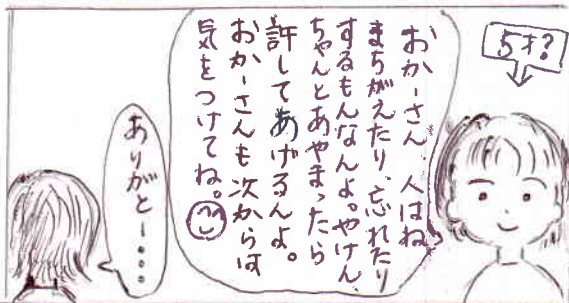 5才?
おかーさん、人はね、
まちがえたり、忘れたり
するもんなんよ。やけん、
ちゃんとあやまったら
許してあげるんよ。
おかーさんも次からは
気をつけてね。
ありがとー…